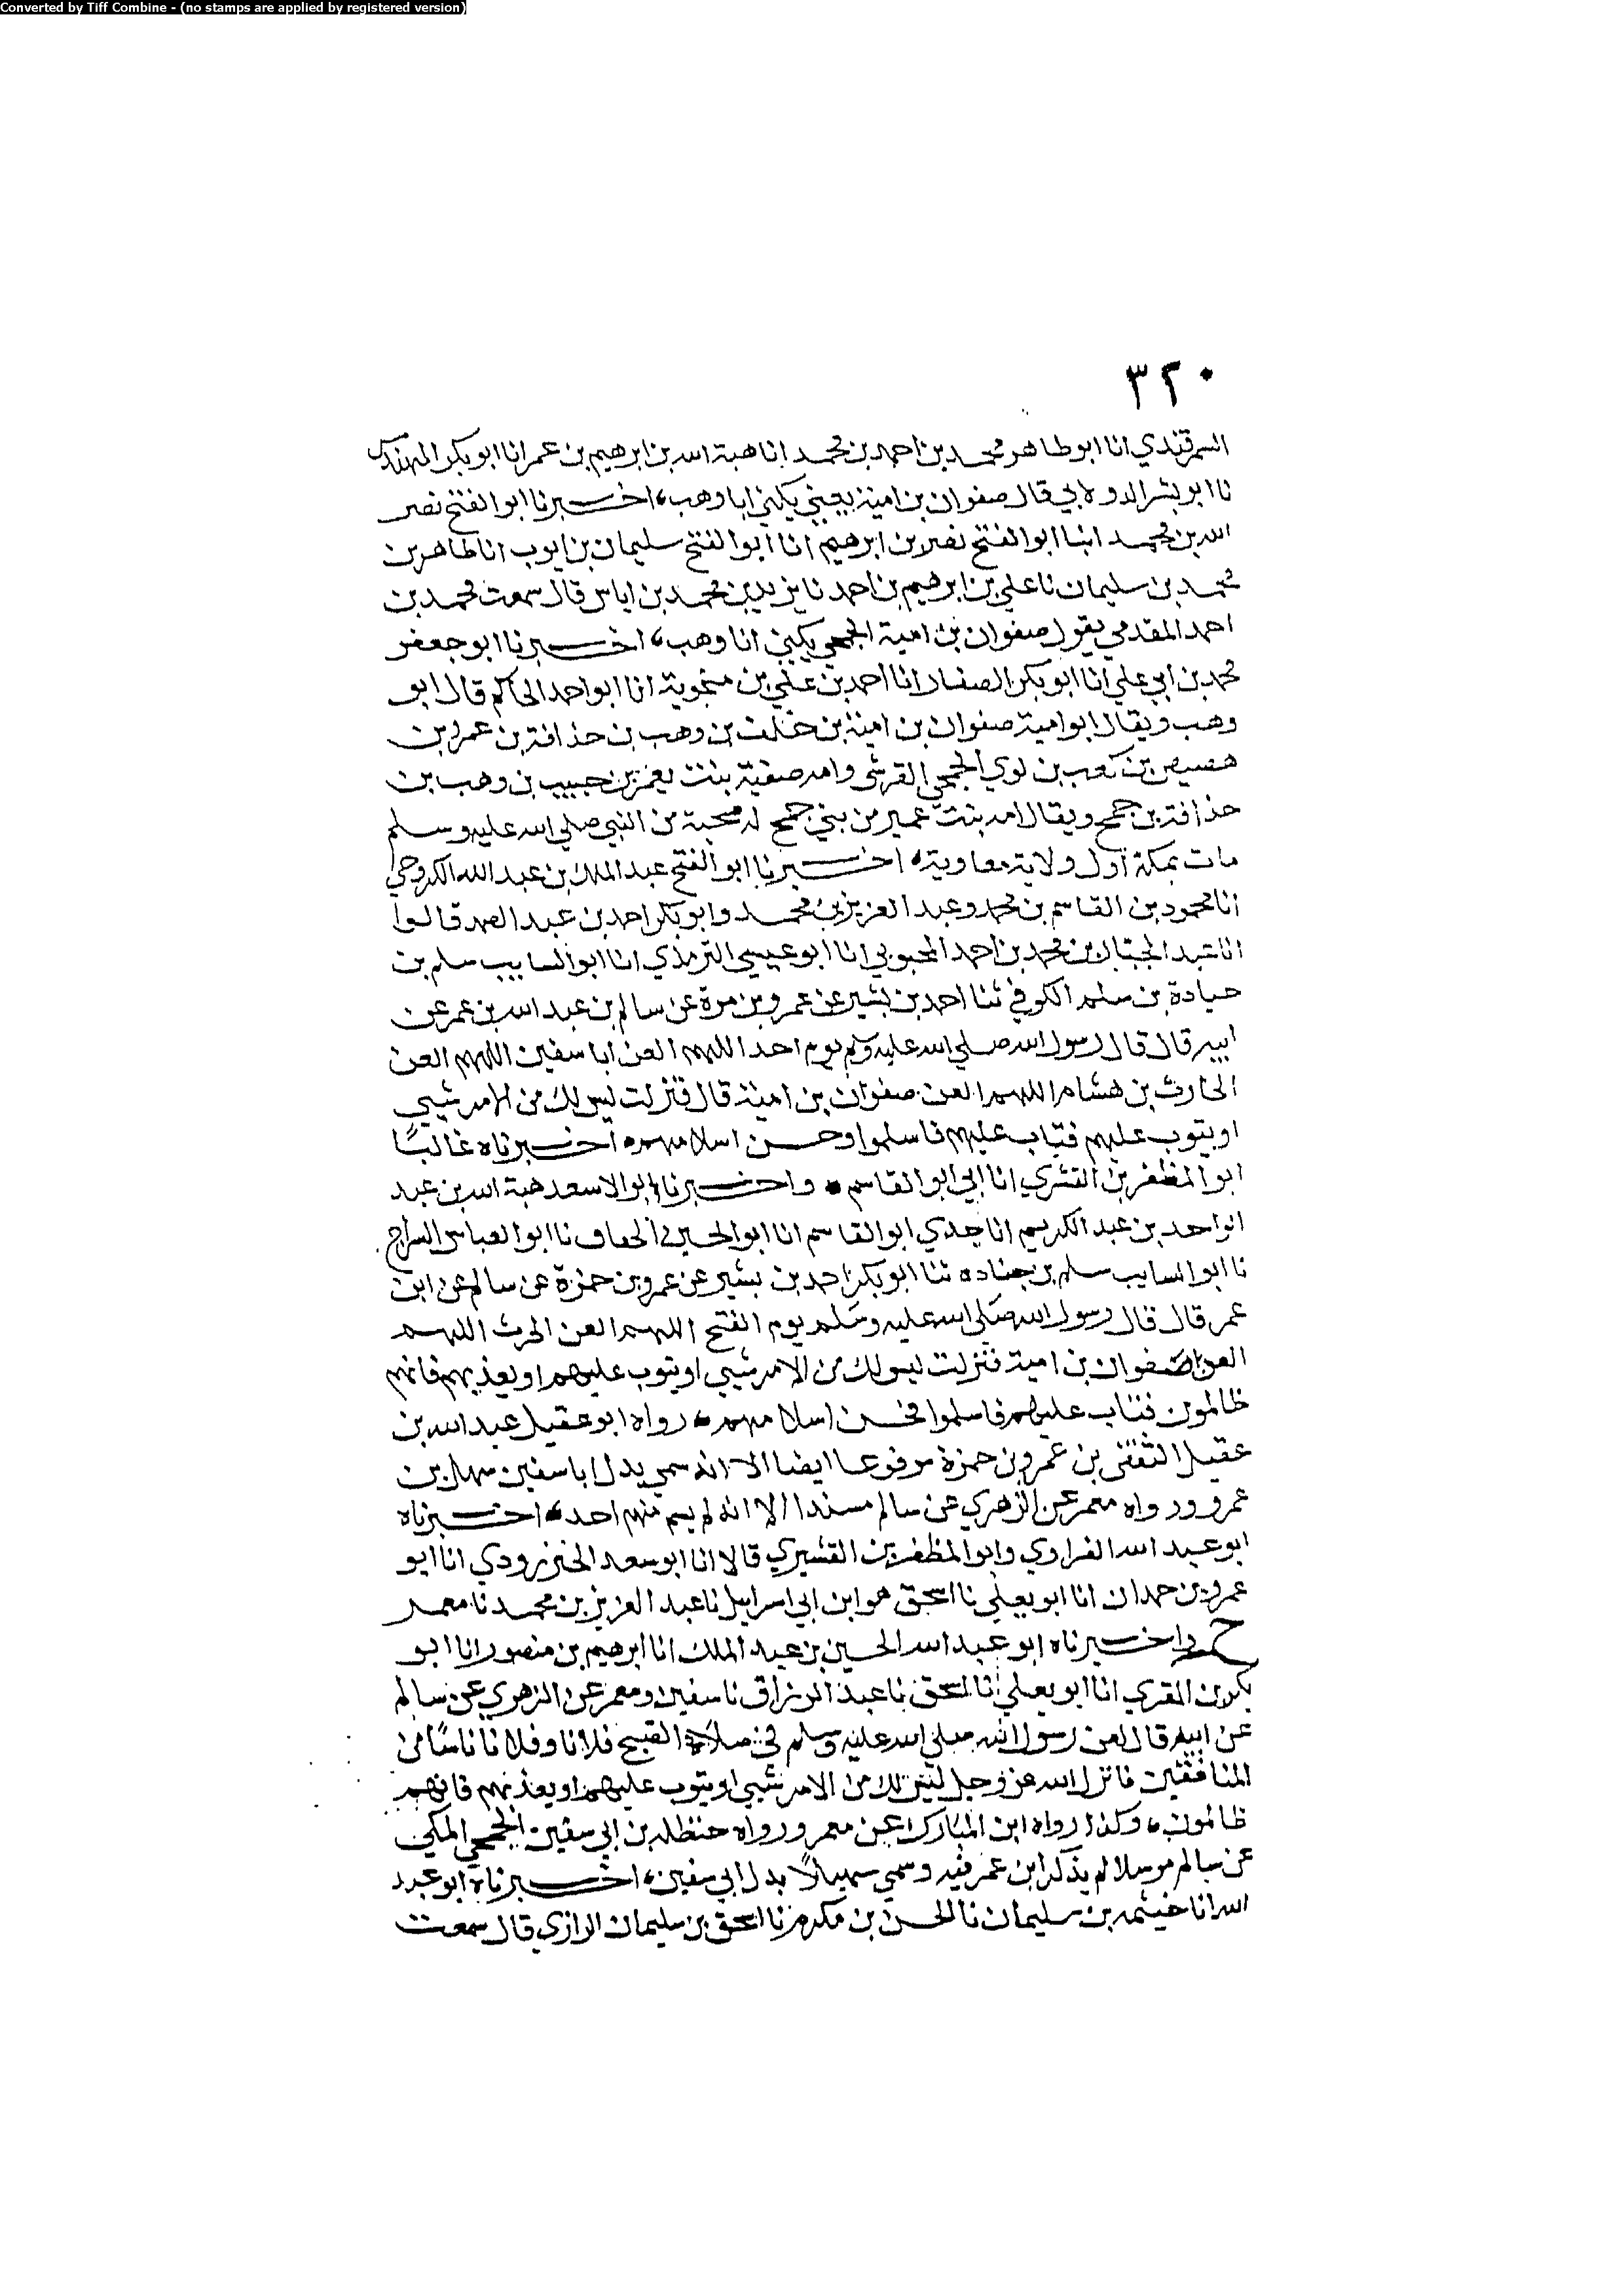 Converted by Tiff Combine - (no stamps are applied by registered version)
٣٢٠
السمرقندي انا ابو طاهر محمد بن احمد بن محمد انا هبة الله بن ابرهيم بن عمر انا ابو بكر المهندس
نا ابو بشر الدولابي قال صفوان بن امية يعني يكني ابا وهب، اخبرنا ابو الفتح نصر
الله بن محمد انبا ابو الفتح نصر بن ابرهيم انا ابو الفتح سليمان بن ايوب انا طاهر بن
محمد بن سليمان نا علي بن ابرهيم بن احمد نا يزيد بن محمد بن اياس قال سمعت محمد بن
احمد المقدمي يقول صفوان بن امية الجمحي يكني ابا وهب، اخبرنا ابو جعفر
محمد بن ابي علي انا ابو بكر الصفار انا احمد بن علي بن منجوية انا ابو احمد الحاكم قال ابو
وهب ويقال ابو امية صفوان بن امية بن خلف بن وهب بن حذافة بن عمرو بن
هصيص بن كعب بن لوي الجمحي القرشي وامه صفية بنت يعمر بن حبيب بن وهب بن
حذافة بن جمح ويقال امه بنت عمير من بني جمح له صحبة من النبي صلي الله عليه وسلم
مات بمكة اول ولاية معاوية، اخبرنا ابو الفتح عبد الملك بن عبد الله الكروخي
انا محمود بن القاسم بن محمد وعبد العزيز بن محمد وابو بكر احمد بن عبد الصمد قالوا
انا عبد الجبار بن محمد بن احمد المحبوبي انا ابو عيسي الترمذي انا ابو السايب سلم بن
جنادة بن سلم الكوفي ثنا احمد بن بشير عن عمرو بن مرة عن سالم بن عبد الله بن عمر عن
ابيه قال قال رسول الله صلي الله عليه وسلم يوم احد اللهم العن ابا سفين اللهم العن
الحارث بن هشام اللهم العن صفوان بن امية قال فنزلت ليس لك من الامر شيي
او يتوب عليهم فتاب عليهم فاسلموا وحسن اسلامهم، اخبرناه غالبًا
ابو المظفر بن القشري انا ابي ابو القاسم، واخبرنا ابو الاسعد هبة الله بن عبد
الواحد بن عبد الكريم انا جدي ابو القاسم انا ابو الحسين الخفاف نا ابو العباس السراج
نا ابو السايب سلم بن جناده ثنا ابو بكر احمد بن بشير عن عمرو بن حمزة عن سالم عن ابن
عمر قال قال رسول الله صلي الله عليه وسلم يوم الفتح اللهم العن الحرث اللهم
العن صفوان بن امية فنزلت ليس لك من الامر شيي او يتوب عليهم او يعذبهم فانهم
ظالمون فتاب عليهم فاسلموا فحسن اسلامهم، رواه ابو عقيل عبد الله بن
عقيل الثقفي بن عمرو بن حمزة مرفوعا ايضا الا انه سمي بدل ابا سفين سهل بن
عمرو ورواه معمر عن الزهري عن سالم مسندا الا انه لم يسم منهم احد، اخبرناه
ابو عبد الله الفراوي وابو المظفر بن القشيري قالا انا ابو سعد الخنزرودي انا ابو
عمرو بن حمدان انا ابو يعلي نا اسحق هو ابن ابي اسرايل نا عبد العزيز بن محمد نا معمر
ح واخبرناه ابو عبد الله الحسين بن عبد الملك انا ابرهيم بن منصور انا ابو
بكر بن المقري انا ابو يعلي انا اسحق نا عبد الرزاق نا سفين ومعمر عن الزهري عن سالم
عن ابيه قال لعن رسول الله صلي الله عليه وسلم في صلاة الصبح فلانا وفلانا ناسًا من
المنافقين فانزل الله عز وجل ليس لك من الامر شيي او يتوب عليهم او يعذبهم فانهم
ظالمون، وكذا رواه ابن المبارك عن معمر ورواه حنظله بن ابي سفين الجمحي المكي
عن سالم مرسلا لم يذكر ابن عمر فيه وسمي سهيلاً بدل ابي سفين، اخبرناه ابو عبد
الله انا خيثمه بن سليمان نا الحسن بن مكرم نا اسحق بن سليمان الرازي قال سمعت